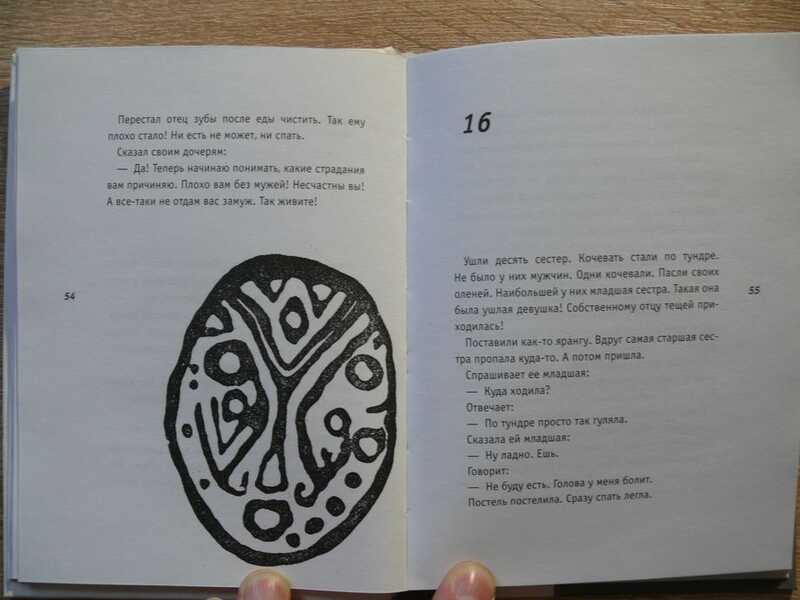 Перестал отец зубы после еды чистить. Так ему
плохо стало! Ни есть не может, ни спать.
Сказал своим дочерям:
— Да! Теперь начинаю понимать, какие страдания
вам причиняю. Плохо вам без мужей! Несчастны вы!
А все-таки не отдам вас замуж. Так живите!
54
16
Ушли десять сестер. Кочевать стали по тундре.
Не было у них мужчин. Одни кочевали. Пасли своих
оленей. Наибольшей у них младшая сестра. Такая она
была ушлая девушка! Собственному отцу тещей при-
ходилась!
Поставили как-то ярангу. Вдруг самая старшая сес-
тра пропала куда-то. А потом пришла.
Спрашивает ее младшая:
— Куда ходила?
Отвечает:
— По тундре просто так гуляла.
Сказала ей младшая:
— Ну ладно. Ешь.
Говорит:
— Не буду есть. Голова у меня болит.
Постель постелила. Сразу спать легла.
55